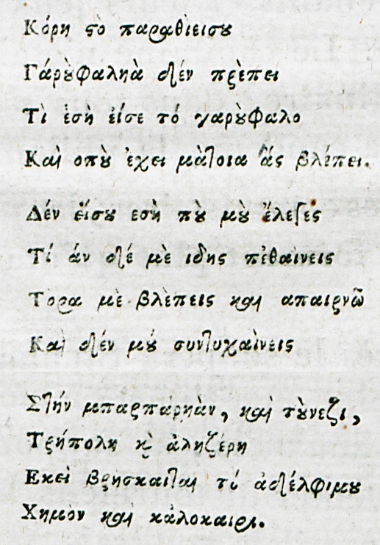 Κόρη τὸ παραθίεισυ
Γάρὺφαληὰ δὲν πρὲπει
Τὶ ἐσὴ εἶσε τό γαρὺφαλο
Καὶ οπὺ ἔχει μὰτοια ἄς βλέπει.
Δέν εἶσυ εσὴ πὺ μὺ ἔλεγες
Τί άν δέ μὲ ιδης πέθαίνεις
Τόρα μὲ βλὲπεις και απαιρνῶ
Καὶ δέν μού συντυχαίνεις
Στήν μπαρπάρηὰν, καὶ τὺνεζι,
Τρήπολη κ̀ ἀληζέρη
Εκεὶ βρήσκαιται τό ἀδέλφιμυ
Χημόν καὶ κάλοκαιρι.